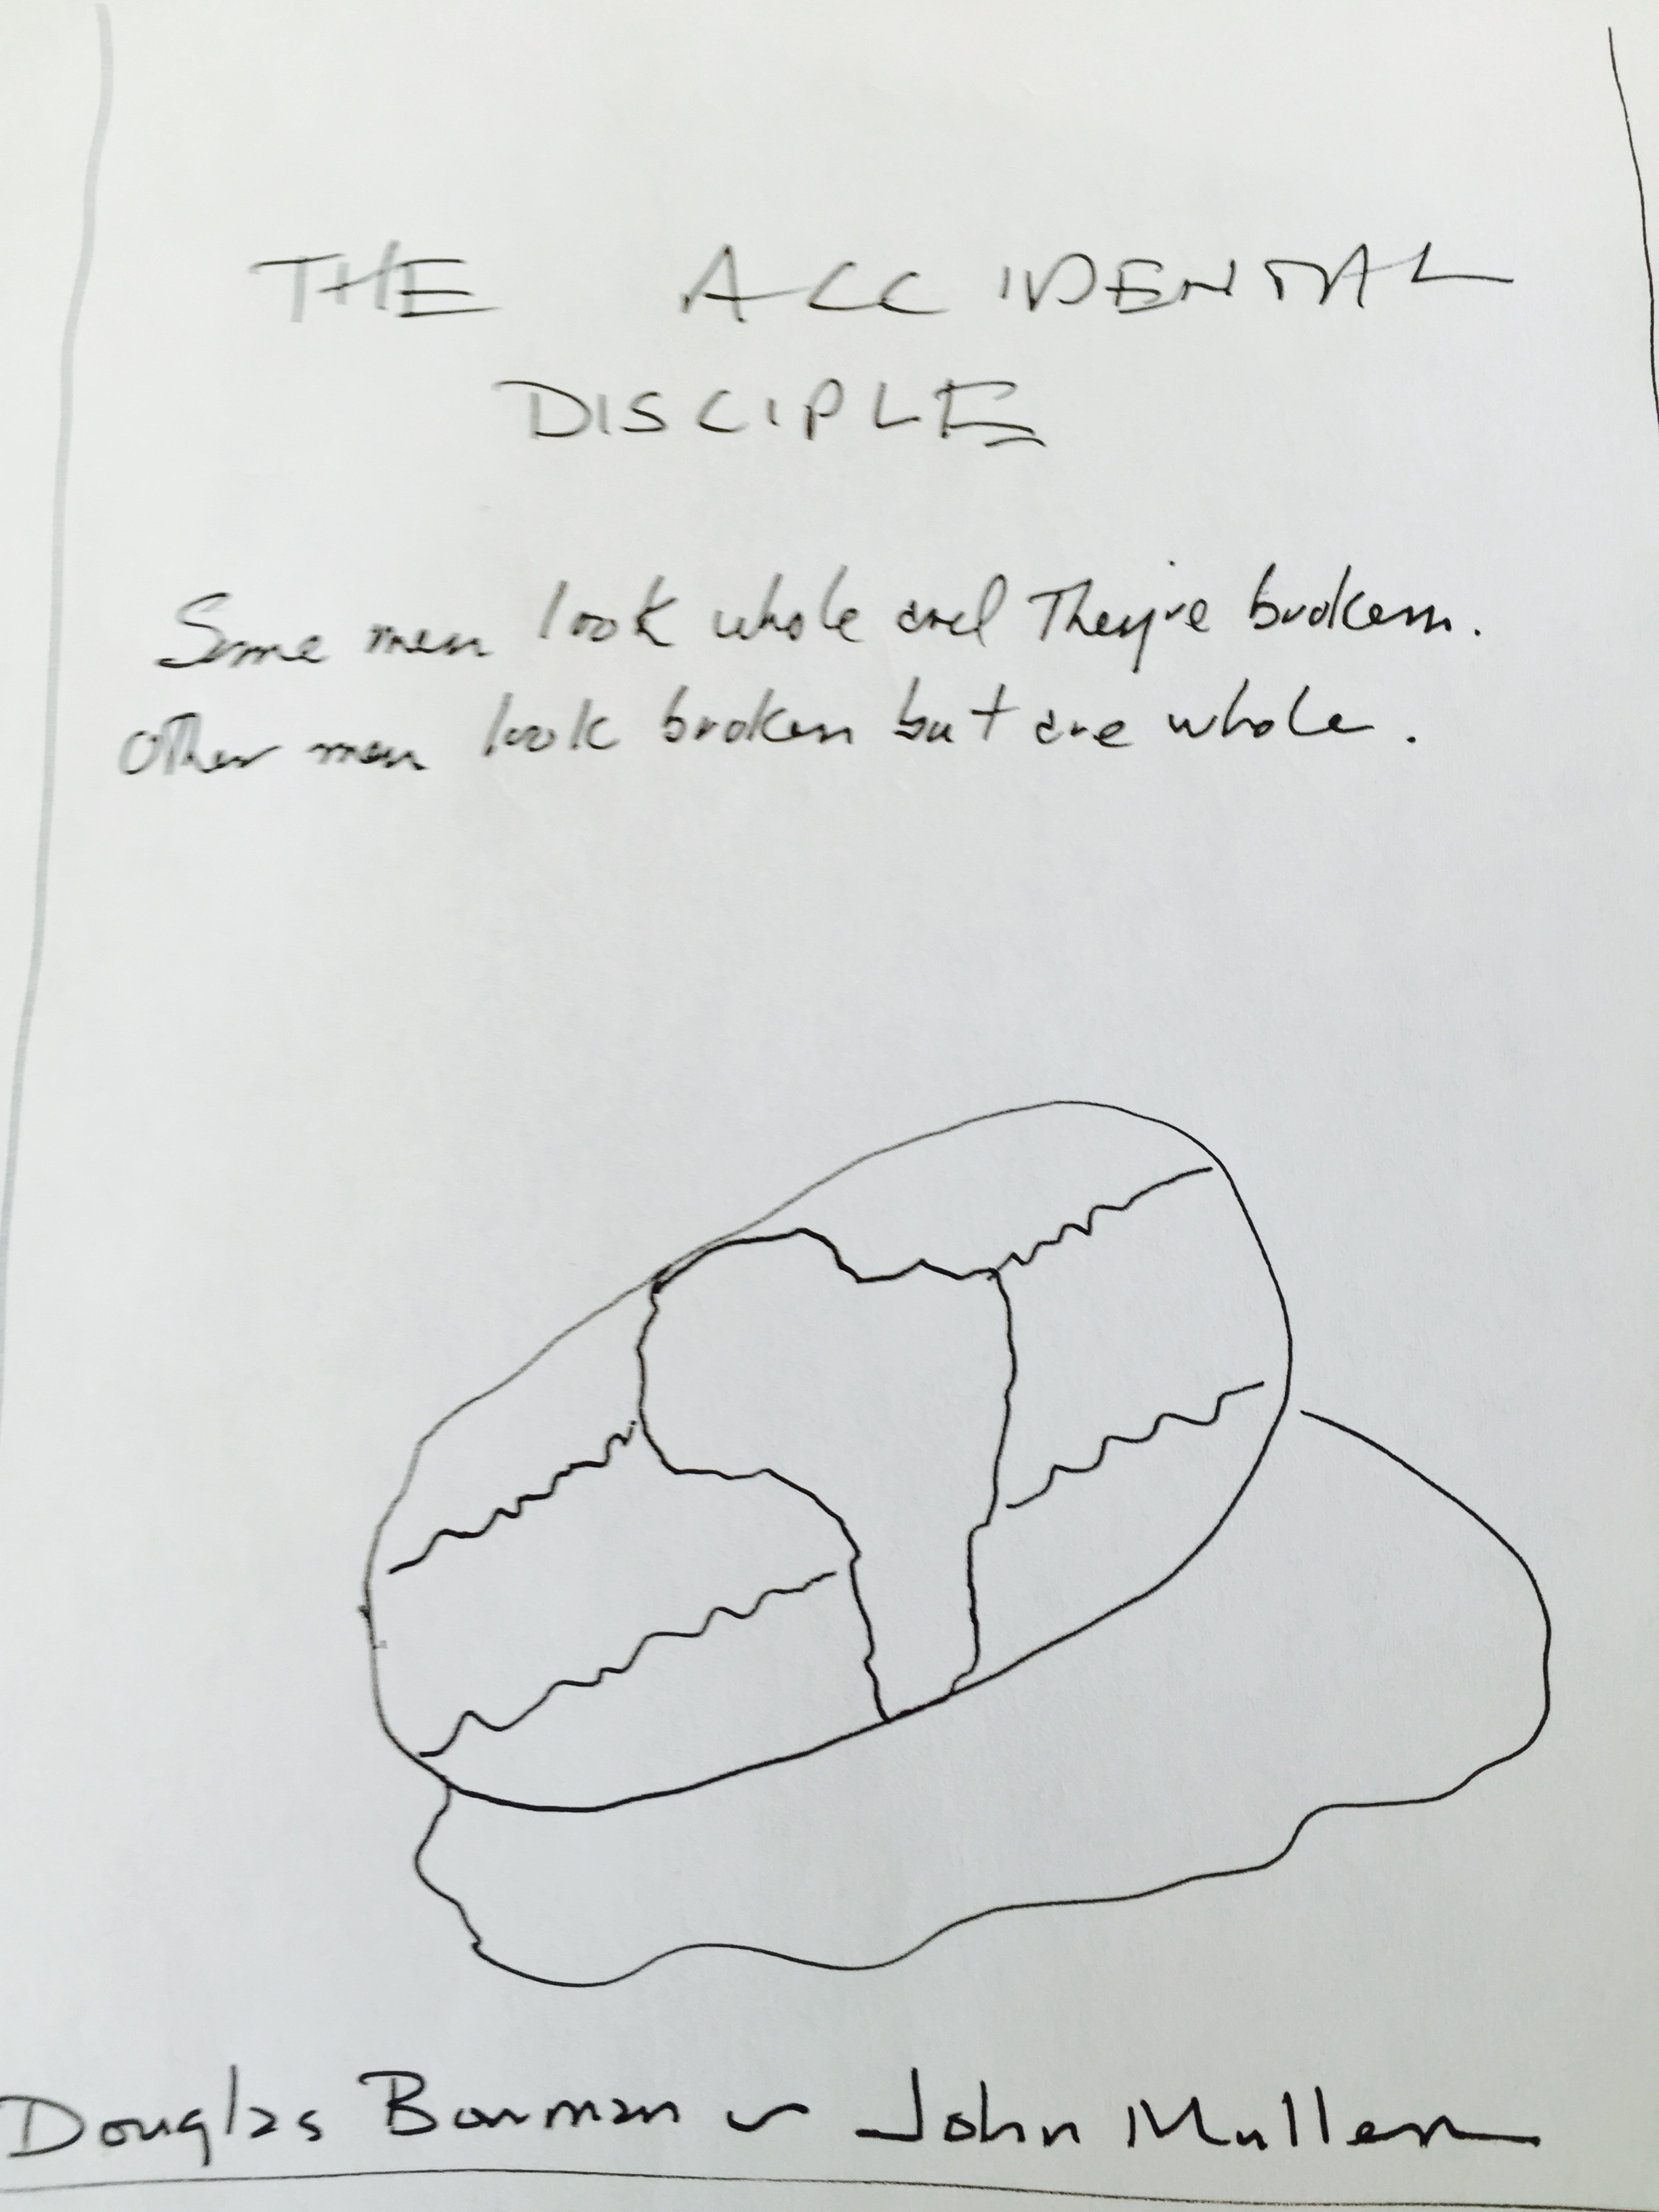 THE ACCIDENTAL
DISCIPLE
Some men look whole and They're broken.
Other men look broken but are whole.
Douglas Bowman w John Mullen